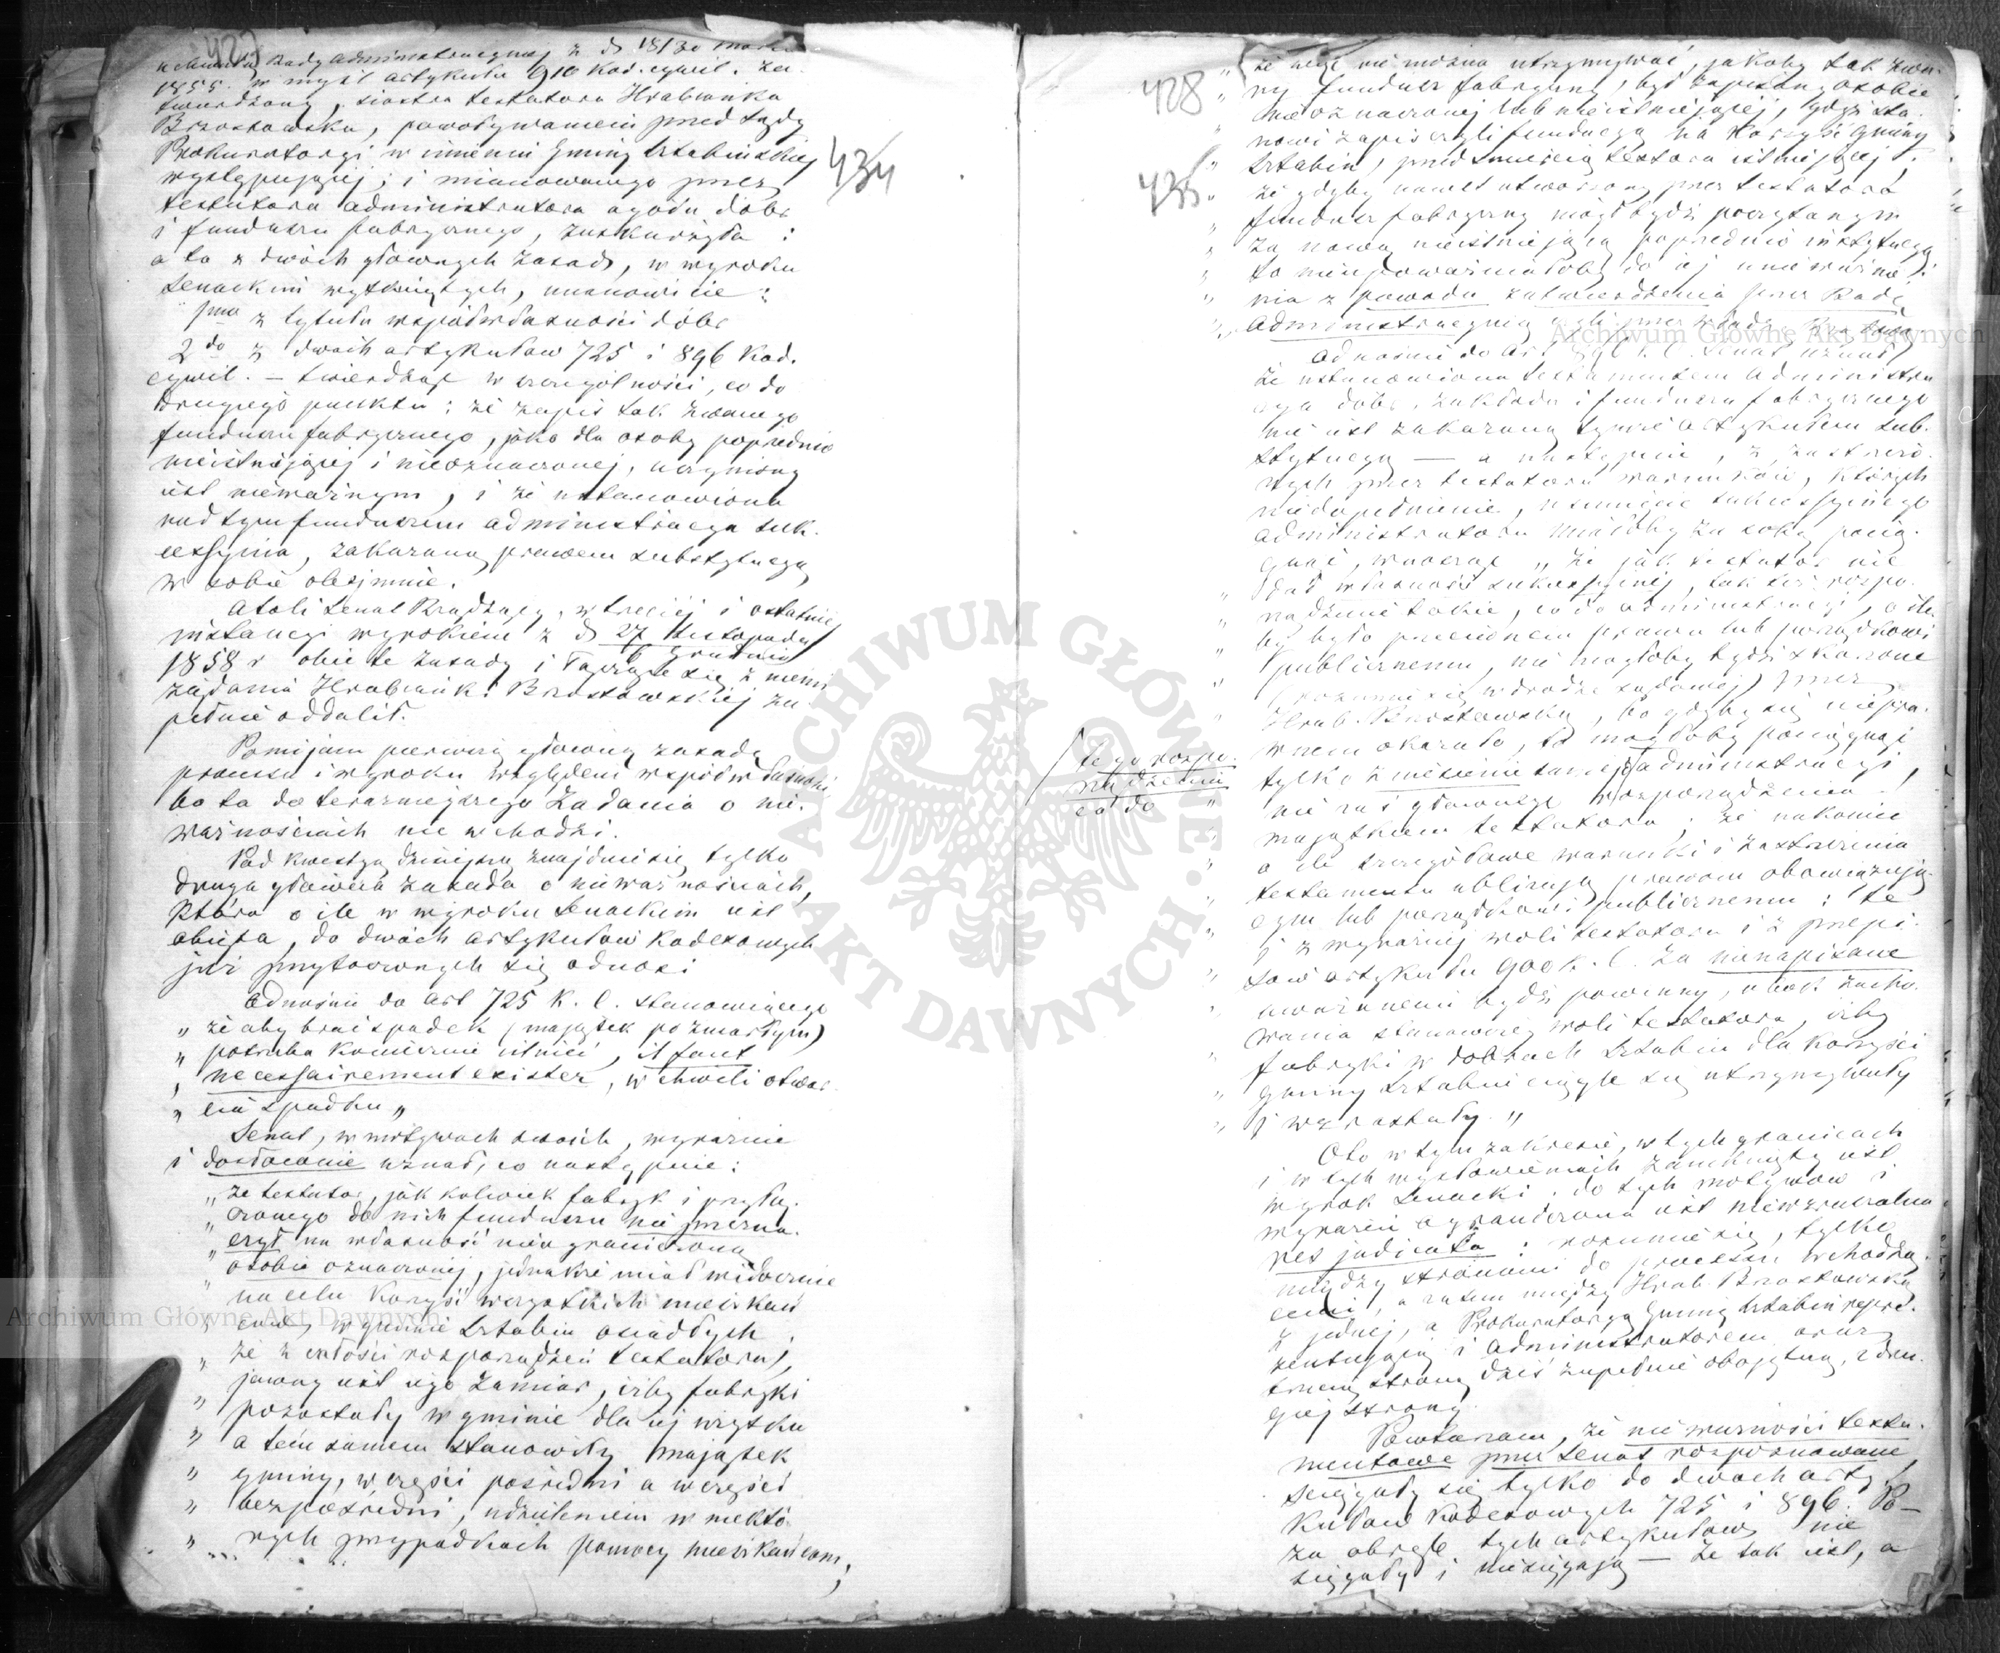 427
uchwałą Rady Administracyjnej z d 18/30 marca
1855. w myśl artykułu 910 Kod. cywil. za-
twierdzony, siostra testatora Hrabianka
Brzostowska, powoływaniem przed sądy
Prokuratorgi w imieniu Gminy Sztabińskiej
występującej; i mianowanego przez
testatora administratora ogółu dóbr
i funduszu fabrycznego, zaskarżyła:
a to z dwóch głównych zasad, w wyroku
Senackim wytkniętych, mianowicie:
1mo z tytułu współwłasności dóbr
2do z dwóch artykułów 725 i 896 Kod.
cywil. — twierdząc w szczególności, co do
drugiego punktu: że zapis tak zwanego
funduszu fabrycznego, jako dla osoby poprzednio
nieistniejącej i nieoznaczonej, uczyniony
jest nieważnym, i że ustanowiona
nad tym funduszem administracya suk-
cessyjna, zakazaną prawem substytucyą
w sobie obejmuje.
Atoli Senat Rządzący, w trzeciej i ostatniej
instancyi wyrokiem z d 27 Listopada
9 Grudnia
1858 r obie te zasady i łączące się z niemi
żądania Hrabianki Brzostowskiej zu-
pełnie oddalił.
Pomijam pierwszą główną zasadę
processu i wyroku względem współwłasności
bo ta do teraźniejszego żądania o nie-
ważnościach nie wchodzi.
Pod kwestyą dzisiejszą znajduje się tylko
druga główna zasada o nieważnościach,
która o ile w wyroku Senackim jest
objęta, do dwóch artykułów Kodexowych
już przytoczonych się odnosi
Odnośnie do Art 725 K. C. stanowiącego
„ że aby brać spadek (majątek po zmarłym)
„ potrzeba koniecznie istnieć, il faut
„ necessairement exister, w chwili otwar-
„ cia spadku „
Senat, w motywach swoich, wyraźnie
i dosłownie uznał, co następuje:
„ że testator, jakkolwiek fabryk i przyłą-
„ czonego do nich funduszu nie przezna-
„ czył na własność nieograniczoną
„ osobie oznaczonej, jednakże miał widocznie
„ na celu korzyść wszystkich mieszkań-
„ ców, w gminie Sztabin osiadłych,
„ że z całości rozporządzeń testatora,
„ jawny jest jego zamiar, iżby fabryki
„ pozostały w gminie dla jej wzrostu
„ a tem samem stanowiły majątek
„ gminy, w części pośredni a w części
„ bezpośredni, udzieleniem w niektó-
„ rych przypadkach pomocy mieszkańcom;
434
428
435
„ że więc nie można utrzymywać, jakoby tak zwa-
„ ny fundusz fabryczny, był zapisany osobie
„ nieoznaczonej lub nieistniejącej, gdyż sta-
„ nowi zapis czyli fundacyą na korzyść gminy
„ Sztabin, przed śmiercią testatora istniejącej,
„ że gdyby nawet utworzony przez testatora
„ fundusz fabryczny mógł być poczytanym
„ za nową nieistniejącą poprzednio instytucyą
„ to nieupoważniałoby do jej unieważnie-
„ nia z powodu zatwierdzenia przez Radę
„ Administracyjną
Odnośnie do Art 896 K. C. Senat uznał,
że ustanowiona testamentem administra-
cya dóbr, zakładu i funduszu fabrycznego
nie jest zakazaną tymże artykułem sub-
stytucyą — a następnie, z zastrzeżo-
nych przez testatora warunków, których
niedopełnienie, usunięcie sukcessyjnego
administratora miałoby za sobą pocią-
gnąć, wnosząc „ że jak testator nie
„ dał własności sukcessyjnej, tak też rozpo-
„ rządzenie takie, co do administracyi, o ile-
„ by było przeciwnem prawu lub porządkowi
„ publicznemu, nie mogłoby być skarżone
„ (rozumie się w drodze sądowej) przez
„ Hrab. Brzostowską, bo gdyby się niepra-
„ wnem okazało, to mogłoby pociągnąć
„ tylko zniesienie samej administracyi,
„ nie zaś głównego rozporządzenia
„ majątkiem testatora; że nakoniec
„ o ile szczegółowe warunki i zastrzeżenia
„ testamentu ubliżają prawom obowiązują-
„ cym lub porządkowi publicznemu; te
„ i z wyraźnej woli testatora i z przepi-
„ sów artykułu 900 K. C. za nienapisane
„ uważanemi być powinny, obok zacho-
„ wania stanowczej woli testatora, iżby
„ fabryki w dobrach Sztabin dla korzyści
„ gminy Sztabin ciągle się utrzymywały
„ i wzrastały. „
tego rozpo-
rządzenia
co do
Oto w tym zakresie, w tych granicach
i w tych wysłowieniach zamknięty jest
wyrok Senacki. do tych motywów i
wyrażeń ograniczona jest niewzruszalna
res judicata: rozumie się, tylko
między stronami do processu wchodzą-
cemi, a zatem między Hrab Brzostowską
z jednej, a Prokuratoryą Gminę Sztabin repre-
zentującą i Administratorem oraz
trzecią stroną dziś zupełnie obojętną, z dru-
giej strony.
Powtarzam, że nieważności testa-
mentowe przez Senat rozpoznawane
sięgały się tylko do dwóch arty-
kułów Kodexowych 725 i 896. Po-
za obręb tych artykułów nie
sięgały i niesięgają — że tak jest, a
Archiwum Główne Akt Dawnych
Archiwum Główne Akt Dawnych
ARCHIWUM GŁÓWNE AKT DAWNYCH